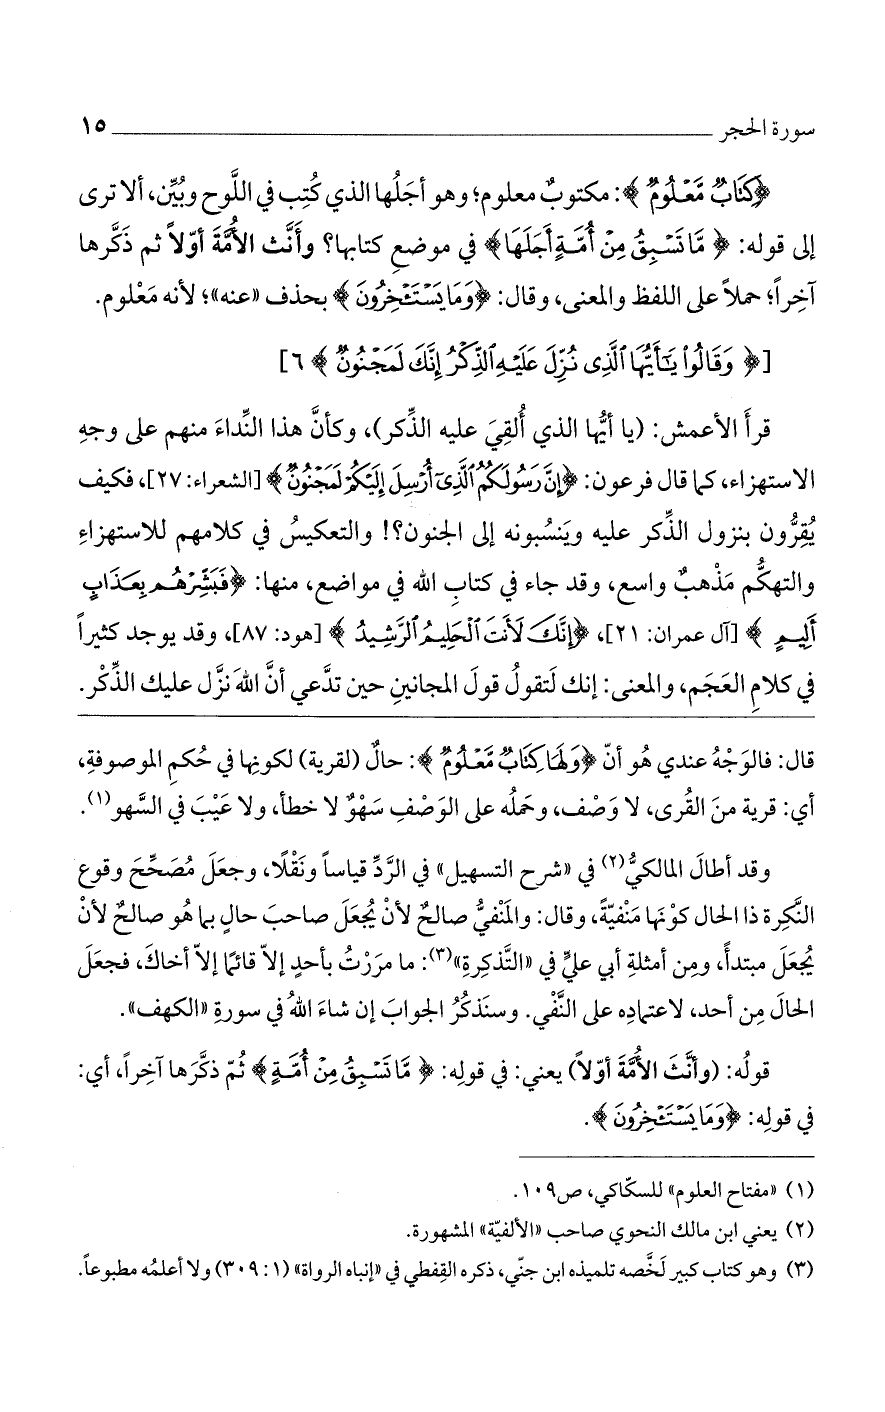 سورة الحجر ١٥
﴿كِتَابٌ مَّعْلُومٌ﴾: مكتوبٌ معلوم؛ وهو أجَلُها الذي كُتِب في اللَّوح وبُيِّن، ألا ترى
إلى قوله: ﴿مَّا تَسْبِقُ مِنْ أُمَّةٍ أَجَلَهَا﴾ في موضعِ كتابها؟ وأنَّث الأُمَّةَ أوّلاً ثم ذَكَّرها
آخِراً؛ حملاً على اللفظ والمعنى، وقال: ﴿وَمَا يَسْتَـْٔخِرُونَ﴾ بحذف «عنه»؛ لأنه مَعْلوم.
[﴿وَقَالُوا۟ يَـٰٓأَيُّهَا ٱلَّذِى نُزِّلَ عَلَيْهِ ٱلذِّكْرُ إِنَّكَ لَمَجْنُونٌ﴾ ٦]
قرأَ الأعمش: (يا أيُّها الذي أُلقِيَ عليه الذِّكر)، وكأنَّ هذا النِّداءَ منهم على وجهِ
الاستهزاء، كما قال فرعون: ﴿إِنَّ رَسُولَكُمُ ٱلَّذِىٓ أُرْسِلَ إِلَيْكُمْ لَمَجْنُونٌ﴾ [الشعراء: ٢٧]، فكيف
يُقِرُّون بنزول الذِّكر عليه ويَنسُبونه إلى الجنون؟! والتعكيسُ في كلامهم للاستهزاءِ
والتهكُّم مَذْهبٌ واسع، وقد جاء في كتابِ الله في مواضع، منها: ﴿فَبَشِّرْهُم بِعَذَابٍ
أَلِيمٍ﴾ [آل عمران: ٢١]، ﴿إِنَّكَ لَأَنتَ ٱلْحَلِيمُ ٱلرَّشِيدُ﴾ [هود: ٨٧]، وقد يوجد كثيراً
في كلامِ العَجَم، والمعنى: إنك لَتقولُ قولَ المجانينِ حين تدَّعي أنَّ اللهَ نزَّل عليك الذِّكْر.
قال: فالوَجْهُ عندي هُو أنّ ﴿وَلَهَا كِتَابٌ مَّعْلُومٌ﴾: حالٌ (لقرية) لكونِها في حُكمِ الموصوفةِ،
أي: قرية منَ القُرى، لا وَصْف، وحَملُه على الوَصْفِ سَهْوٌ لا خطأ، ولا عَيْبَ في السَّهو(١).
وقد أطالَ المالكيُّ(٢) في «شرح التسهيل» في الرَّدِّ قياساً ونَقْلًا، وجعَلَ مُصَحِّحَ وقوع
النَّكِرة ذا الحال كوْنَها مَنْفيّةً، وقال: والمَنْفيُّ صالحٌ لأنْ يُجعَلَ صاحبَ حالٍ بما هُو صالحٌ لأنْ
يُجعَلَ مبتدأً، ومِن أمثلةِ أبي عليٍّ في «التَّذكِرةِ»(٣): ما مرَرْتُ بأحدٍ إلاّ قائمًا إلاّ أخاكَ، فجعَلَ
الحالَ مِن أحد، لاعتمادِه على النَّفْي. وسنَذكُرُ الجوابَ إن شاءَ اللهُ في سورةِ «الكهف».
قولُه: (وأنَّثَ الأُمَّةَ أوّلاً) يعني: في قولِه: ﴿مَّا تَسْبِقُ مِنْ أُمَّةٍ﴾ ثُمّ ذكَّرَها آخِراً، أي:
في قولِه: ﴿وَمَا يَسْتَـْٔخِرُونَ﴾.
(١) «مفتاح العلوم» للسكّاكي، ص١٠٩.
(٢) يعني ابن مالك النحوي صاحب «الألفيّة» المشهورة.
(٣) وهو كتاب كبير لَخَّصه تلميذه ابن جنّي، ذكره القِفطي في «إنباه الرواة» (١: ٣٠٩) ولا أعلمُه مطبوعاً.